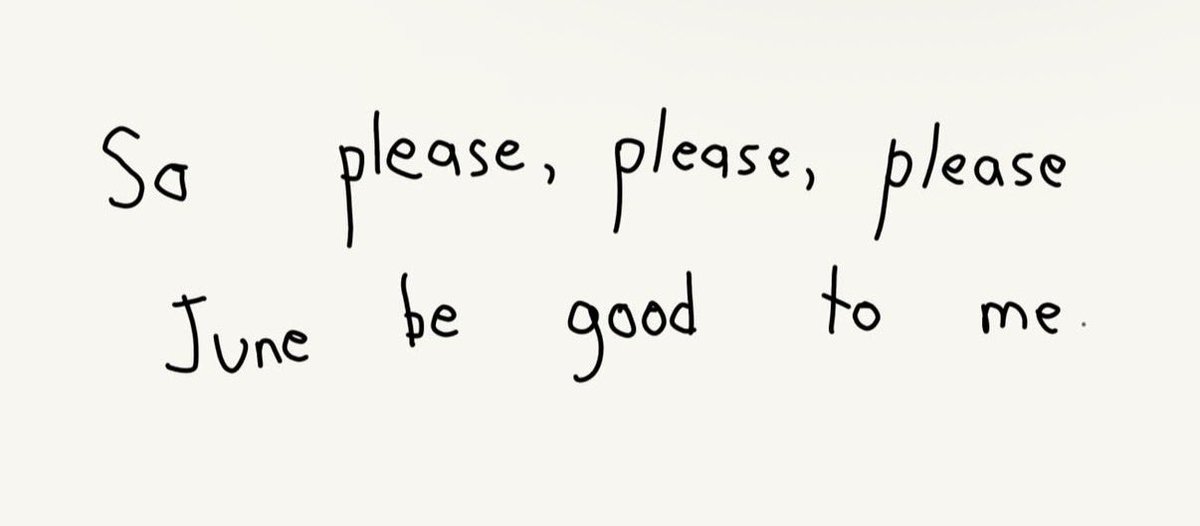 So please, please, please
June be good to me.